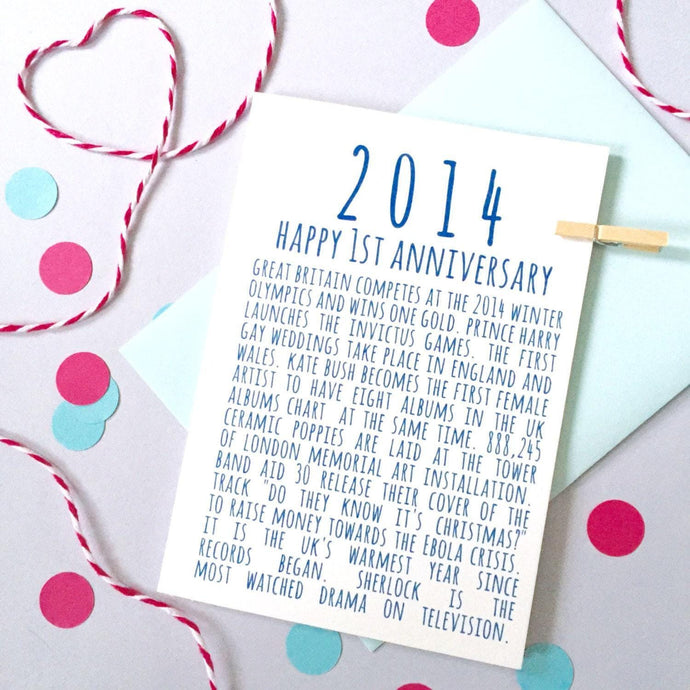 2014
HAPPY 1ST ANNIVERSARY
GREAT BRITAIN COMPETES AT THE 2014 WINTER
OLYMPICS AND WINS ONE GOLD. PRINCE HARRY
LAUNCHES THE INVICTUS GAMES. THE FIRST
GAY WEDDINGS TAKE PLACE IN ENGLAND AND
WALES. KATE BUSH BECOMES THE FIRST FEMALE
ARTIST TO HAVE EIGHT ALBUMS IN THE UK
ALBUMS CHART AT THE SAME TIME. 888,245
CERAMIC POPPIES ARE LAID AT THE TOWER
OF LONDON MEMORIAL ART INSTALLATION.
BAND AID 30 RELEASE THEIR COVER OF THE
TRACK "DO THEY KNOW IT'S CHRISTMAS?"
TO RAISE MONEY TOWARDS THE EBOLA CRISIS.
IT IS THE UK'S WARMEST YEAR SINCE
RECORDS BEGAN. SHERLOCK IS THE
MOST WATCHED DRAMA ON TELEVISION.